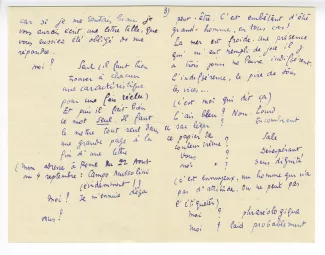 car si je me sentais, bien je
vous aurais écrit une lettre telle, que
vous eussiez été obligé de me
répondre.
moi ? Seul (il faut bien
trouver à chacun
une caractéristique
pour une fois réelle)
Et puis il faut bien
le mot seul. Il faut
le mettre tout seul dans
une grande page à la
fin d'une lettre
(mon adresse à Rome du 22 Août
au 9 septembre : Campo Mussolini
(évidemment !)
Moi ? Je m'ennuie déjà
vous ?
3)
peut-être. C'est embêtant d'être
grand-homme, en tous cas !
La mer est froide, ma présence
qui m'est remplie de joie, il
a trois pour me laisse indifférent.
L'indifférence, le pire de tous
les vices...
(c'est moi qui dit ça)
L'air bleu ? Non Lourd
ce sac beige ? Encombrant
ce papier de
couleur crème ? Sale
Vous ? Désespérant
moi ? sans dignité
(c'est ennuyeux, un homme qui n'a
pas d'attitude. On ne peut pas
l'étiqueter)
moi ? phraséologique
moi ? laid probablement